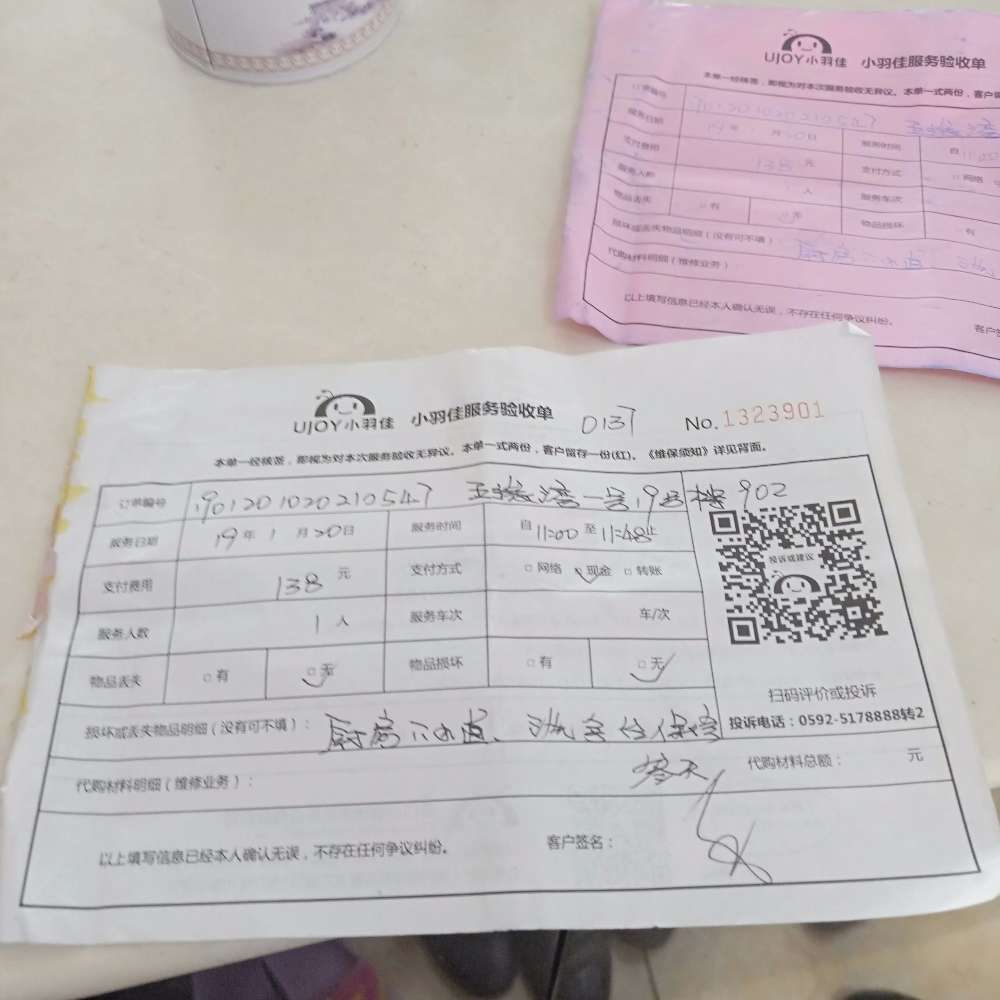 UJOY小羽佳 小羽佳服务验收单 0137 No.1323901
本单一经核签，即视为对本次服务验收无异议。本单一式两份，客户留存一份(红)。《维保须知》详见背面。
订单编号 1901201020210547 一号19号楼902
服务日期 19年1月20日 服务时间 自11:00至11:48止
支付费用 138元 支付方式 □网络 □现金 □转账
服务人数 1人 服务车次 车/次
物品丢失 □有 □无 物品损坏 □有 □无
投诉或建议
扫码评价或投诉
投诉电话：0592-5178888转2
损坏或丢失物品明细（没有可不填）： 厨房下水道、
代购材料明细（维修业务）： 代购材料总额： 元
以上填写信息已经本人确认无误，不存在任何争议纠纷。 客户签名：
UJOY小羽佳 小羽佳服务验收单
本单一经核签，即视为对本次服务验收无异议。本单一式两份，客户留
订单编号 1901201020210547
服务日期 19年1月20日 服务时间 自11:00
支付费用 138元 支付方式 □网络
服务人数 人 服务车次
物品丢失 □有 □无 物品损坏 □有
损坏或丢失物品明细（没有可不填）： 厨房下水道
代购材料明细（维修业务）：
以上填写信息已经本人确认无误，不存在任何争议纠纷。 客户签